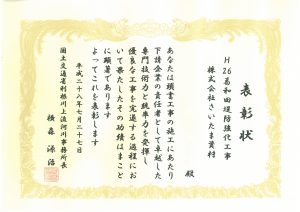 表彰状
H26葛和田堤防強化工事
株式会社さいたま資材
殿
あなたは標書工事の施工にあたり
下請企業の責任者として卓越した
専門技術力と統率力を発揮し
優良な工事を完遂する過程にお
いて果たしたその功績はまこと
に顕著であります
よってこれを表彰します
平成二十八年七月二十七日
国土交通省利根川上流河川事務所長